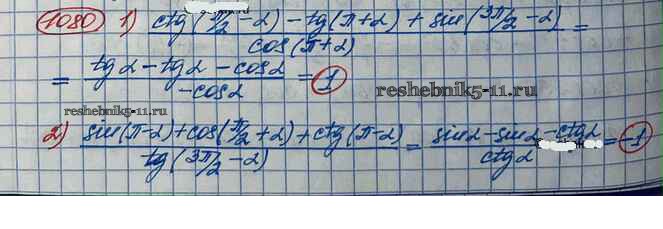 1080 1) ctg(π/2 - α) - tg(π + α) + sin(3π/2 - α) =
cos(π + α)
= tgα - tgα - cosα = 1
-cosα
reshebnik5-11.ru
reshebnik5-11.ru
2) sin(π - α) + cos(π/2 + α) + ctg(π - α) = sinα - sinα - ctgα = -1
tg(3π/2 - α) ctgα